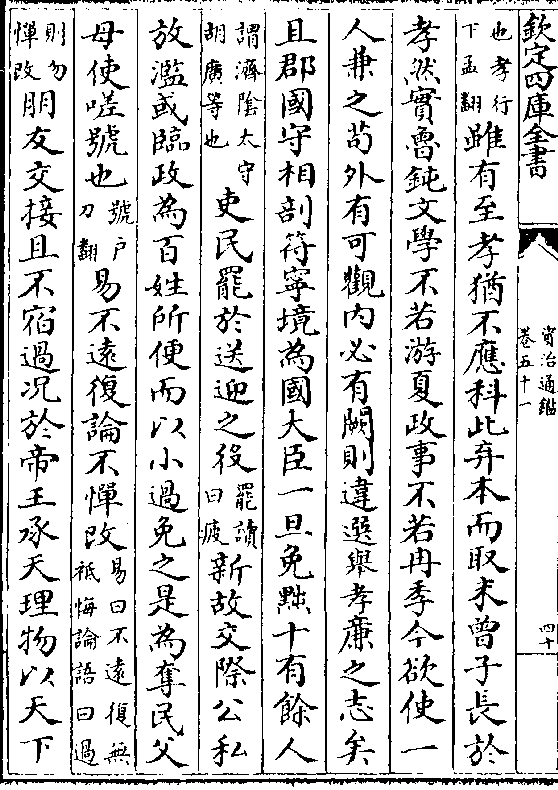 欽定四庫全書
資治通鑑
卷五十一
四十
也孝行
下孟翻
雖有至孝猶不應科此弃本而取末曾子長於
孝然實魯鈍文學不若游夏政事不若冉季今欲使一
人兼之茍外有可觀内必有闕則違選舉孝廉之志矣
且郡國守相剖符寧境為國大臣一旦免黜十有餘人
謂濟隂太守
胡廣等也
吏民罷於送迎之役
罷讀
曰疲
新故交際公私
放濫或臨政為百姓所便而以小過免之是為奪民父
母使嗟號也
號戶
刀翻
易不遠復論不憚改
易曰不遠復無
祗悔論語曰過
則勿
憚改
朋友交接且不宿過况於帝王承天理物以天下